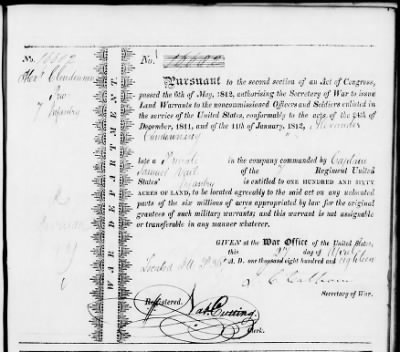 No. 16602
Alexr Clendennen
Priv
7 Infantry
WAR DEPARTMENT
No. 16602
PURSUANT to the second section of an Act of Congress,
passed the 6th of May, 1812, authorising the Secretary of War to issue
Land Warrants to the noncommissioned Officers and Soldiers enlisted in
the service of the United States, conformably to the acts of the 24th of
December, 1811, and of the 11th of January, 1812, Alexander
Clendennen
late a Private in the company commanded by Captain
Samuel Vail 7 Regiment United
States' Infantry is entitled to ONE HUNDRED AND SIXTY
ACRES OF LAND, to be located agreeably to the said act on any unlocated
parts of the six millions of acres appropriated by law for the original
grantees of such military warrants; and this warrant is not assignable
or transferable in any manner whatever.
GIVEN at the War Office of the United States,
this day of April
A. D. one thousand eight hundred and eighteen
Located
J. C. Calhoun
Secretary of War.
Registered.
Nat Cutting
Clerk.